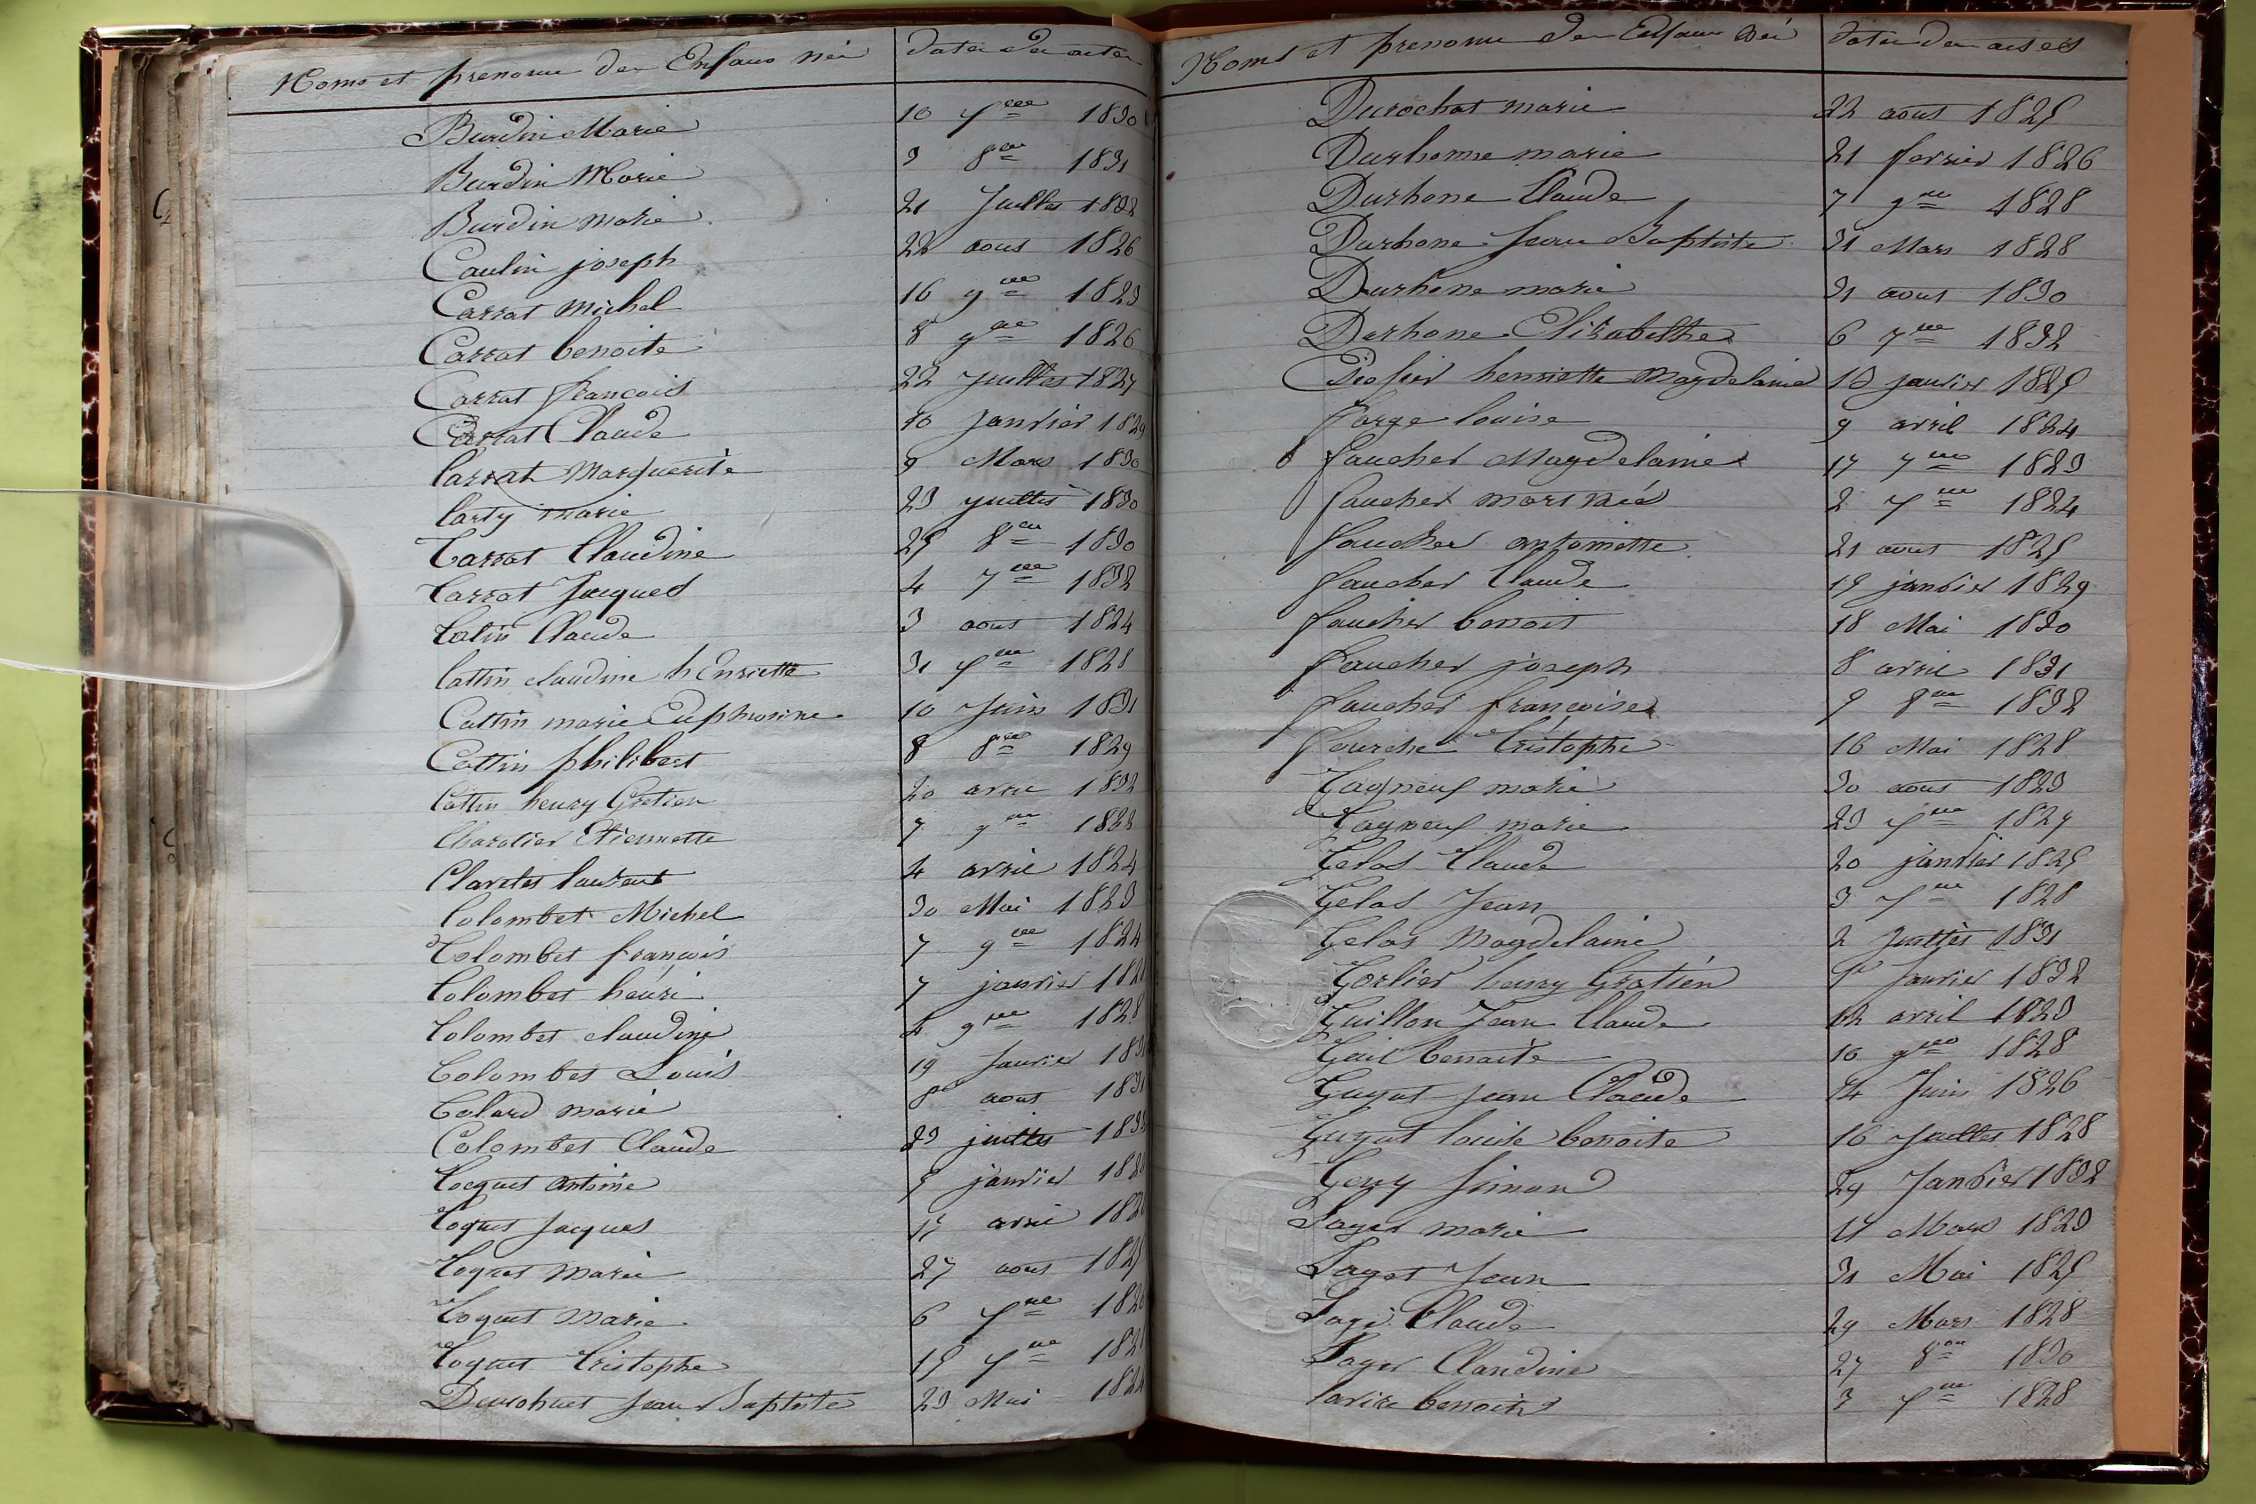 Noms et prenoms des Enfans nés dates des actes
Burdin Marie 10 7bre 1830
Burdin Marie 3 8bre 1831
Burdin marie 21 Juillet 1832
Caulin joseph 22 aout 1826
Carrat michel 16 9bre 1823
Carrat benoite 8 9bre 1826
Carrat francois 22 juillet 1827
Carrat Claude 10 janvier 1829
Carrat Marguerite 9 Mars 1830
Carty marie 23 juillet 1830
Carrat Claudine 25 8bre 1830
Carrat Jacques 4 7bre 1832
Catin Claude 3 aout 1824
Cattin claudine hEnriette 31 7bre 1828
Cattin marie Euphrosine 10 Juin 1831
Cattin philibert 8 8bre 1829
Cattin henry Gratien 20 avril 1832
Charolier Etiennette 7 9bre
Claretes laurent 4 avril 1824
Colombet Michel 30 Mai 1823
Colombet francois 7 9bre 1824
Colombet henri 7 janvier
Colombet claudine 4 9bre 1828
Colombet Louis 19 Janvier
Colard marie aout 1831
Colombet Claude 23 juillet
Cocquet antoine 5 janvier
Coquet Jacques 15 avril
Coquet Marie 27 aout 1825
Coquet Marie 6 7bre
Coquet Cristophe 15 7bre
Durochat Jean Baptiste 23 Mai
Noms et prenoms des Enfans nés dates des actes
Durochat marie 22 aout 1825
Durhonne marie 21 fevrier 1826
Durhone Claude 7 9bre 1828
Durhone Jean Baptiste 31 Mars 1828
Durhone marie 31 aout 1830
Derhone Elizabethe 6 7bre 1832
henriette Magdelaine 13 janvier 1825
forge louise 9 avril 1824
faucher Magdelaine 17 7bre 1823
faucher mort née 2 7bre 1824
faucher antoinette 21 aout 1825
faucher Claude 15 janvier 1829
faucher benoit 18 Mai 1830
faucher joseph 8 avril 1831
faucher francoise 5 8bre 1832
fourche Cristophe 16 Mai 1828
Gagneuf marie 30 aout 1823
Gagneuf marie 23 7bre 1827
Gelas Claude 20 janvier 1825
Gelas Jean 3 7bre 1828
Gelas Magdelaine 2 Juillet 1831
Gorlier henry Gratien 1er Janvier 1832
Guillon Jean Claude 12 avril 1823
Guil benoite 10 9bre 1828
Guyot Jean Claude 14 Juin 1826
Guyot louise benoite 16 Juillet 1828
Guy Simon 29 Janvier 1832
Lager marie 11 Mars 1823
Lager Jean 31 Mai 1825
Lage Claude 29 Mars 1828
Lager Claudine 27 8bre 1830
larize benoite 3 7bre 1828